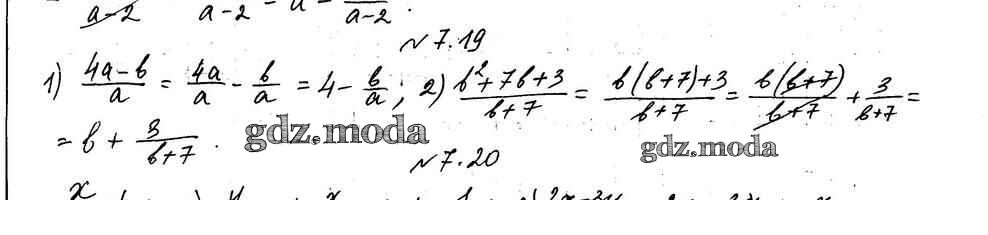 a-2 a-2 - a - a-2 .
№7.19
1) (4a-b)/a = 4a/a - b/a = 4 - b/a ; 2) (b²+7b+3)/(b+7) = (b(b+7)+3)/(b+7) = b(b+7)/(b+7) + 3/(b+7) =
= b + 3/(b+7) . gdz.moda gdz.moda
№7.20
x